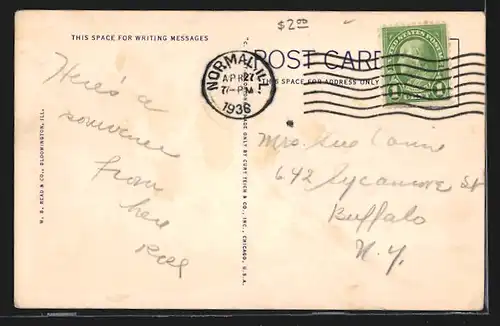 $2.00
THIS SPACE FOR WRITING MESSAGES
POST CARD
THIS SPACE FOR ADDRESS ONLY
NORMAL, ILL.
APR 27
7-PM
1936
UNITED STATES POSTAGE
Here's a
souvenir
from
here
W. B. READ & CO., BLOOMINGTON, ILL.
MADE ONLY BY CURT TEICH & CO., INC., CHICAGO, U.S.A.
Mrs.
642 Sycamore St
Buffalo
N.Y.